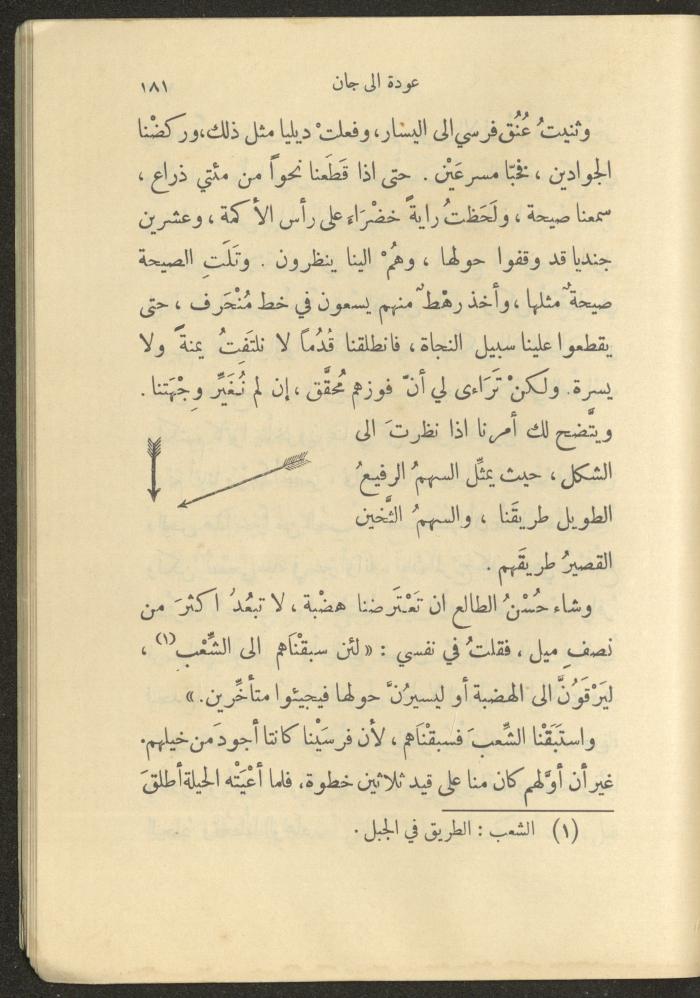 عودة الى جان ١٨١
وثنيتُ عُنُق فرسي الى اليسار، وفعلتْ ديليا مثل ذلك، وركضْنا
الجوادين ، فخبّا مسرعَيْن . حتى اذا قَطَعنا نحواً من مئتي ذراع ،
سمعنا صيحة ، ولَحَظتُ رايةً خضْرَاءَ على رأس الأكمة ، وعشرين
جنديا قد وقفوا حولها ، وهُمْ الينا ينظرون . وتَلَتِ الصيحة
صيحةٌ مثلها ، وأخذ رهْطٌ منهم يسعون في خط مُنْحَرف ، حتى
يقطعوا علينا سبيل النجاة ، فانطلقنا قُدُماً لا نلتَفِتُ يمنةً ولا
يسرة. ولكنْ تَرَاءى لي أنّ فوزهم مُحَقَّق ، إن لم نُغَيِّر وِجْهَتنا .
ويتَّضح لك أمرنا اذا نظرتَ الى
الشكل ، حيث يمثِّل السهمُ الرفيعُ
الطويل طريقَنا ، والسهمُ الثَّخين
القصيرُ طريقَهم .
وشاء حُسْنُ الطالع ان تَعْتَرضنا هضْبة ، لا تبعُدُ اكثرَ من
نصفِ ميل ، فقلتُ في نفسي : « لئن سبقْنَاهم الى الشِّعْب (١) ،
ليَرْقَوُنَّ الى الهضبة أو ليسيرُنَّ حولها فيجيئوا متأخِّرين. »
واستَبَقْنا الشِّعبَ فسبقْنَاهم ، لأن فرسَيْنا كانتا أجودَ من خيلهم.
غير أن أوَّلهم كان منا على قيد ثلاثين خطوة، فلما أعْيَتْه الحيلة أطلقَ
(١) الشعب : الطريق في الجبل .